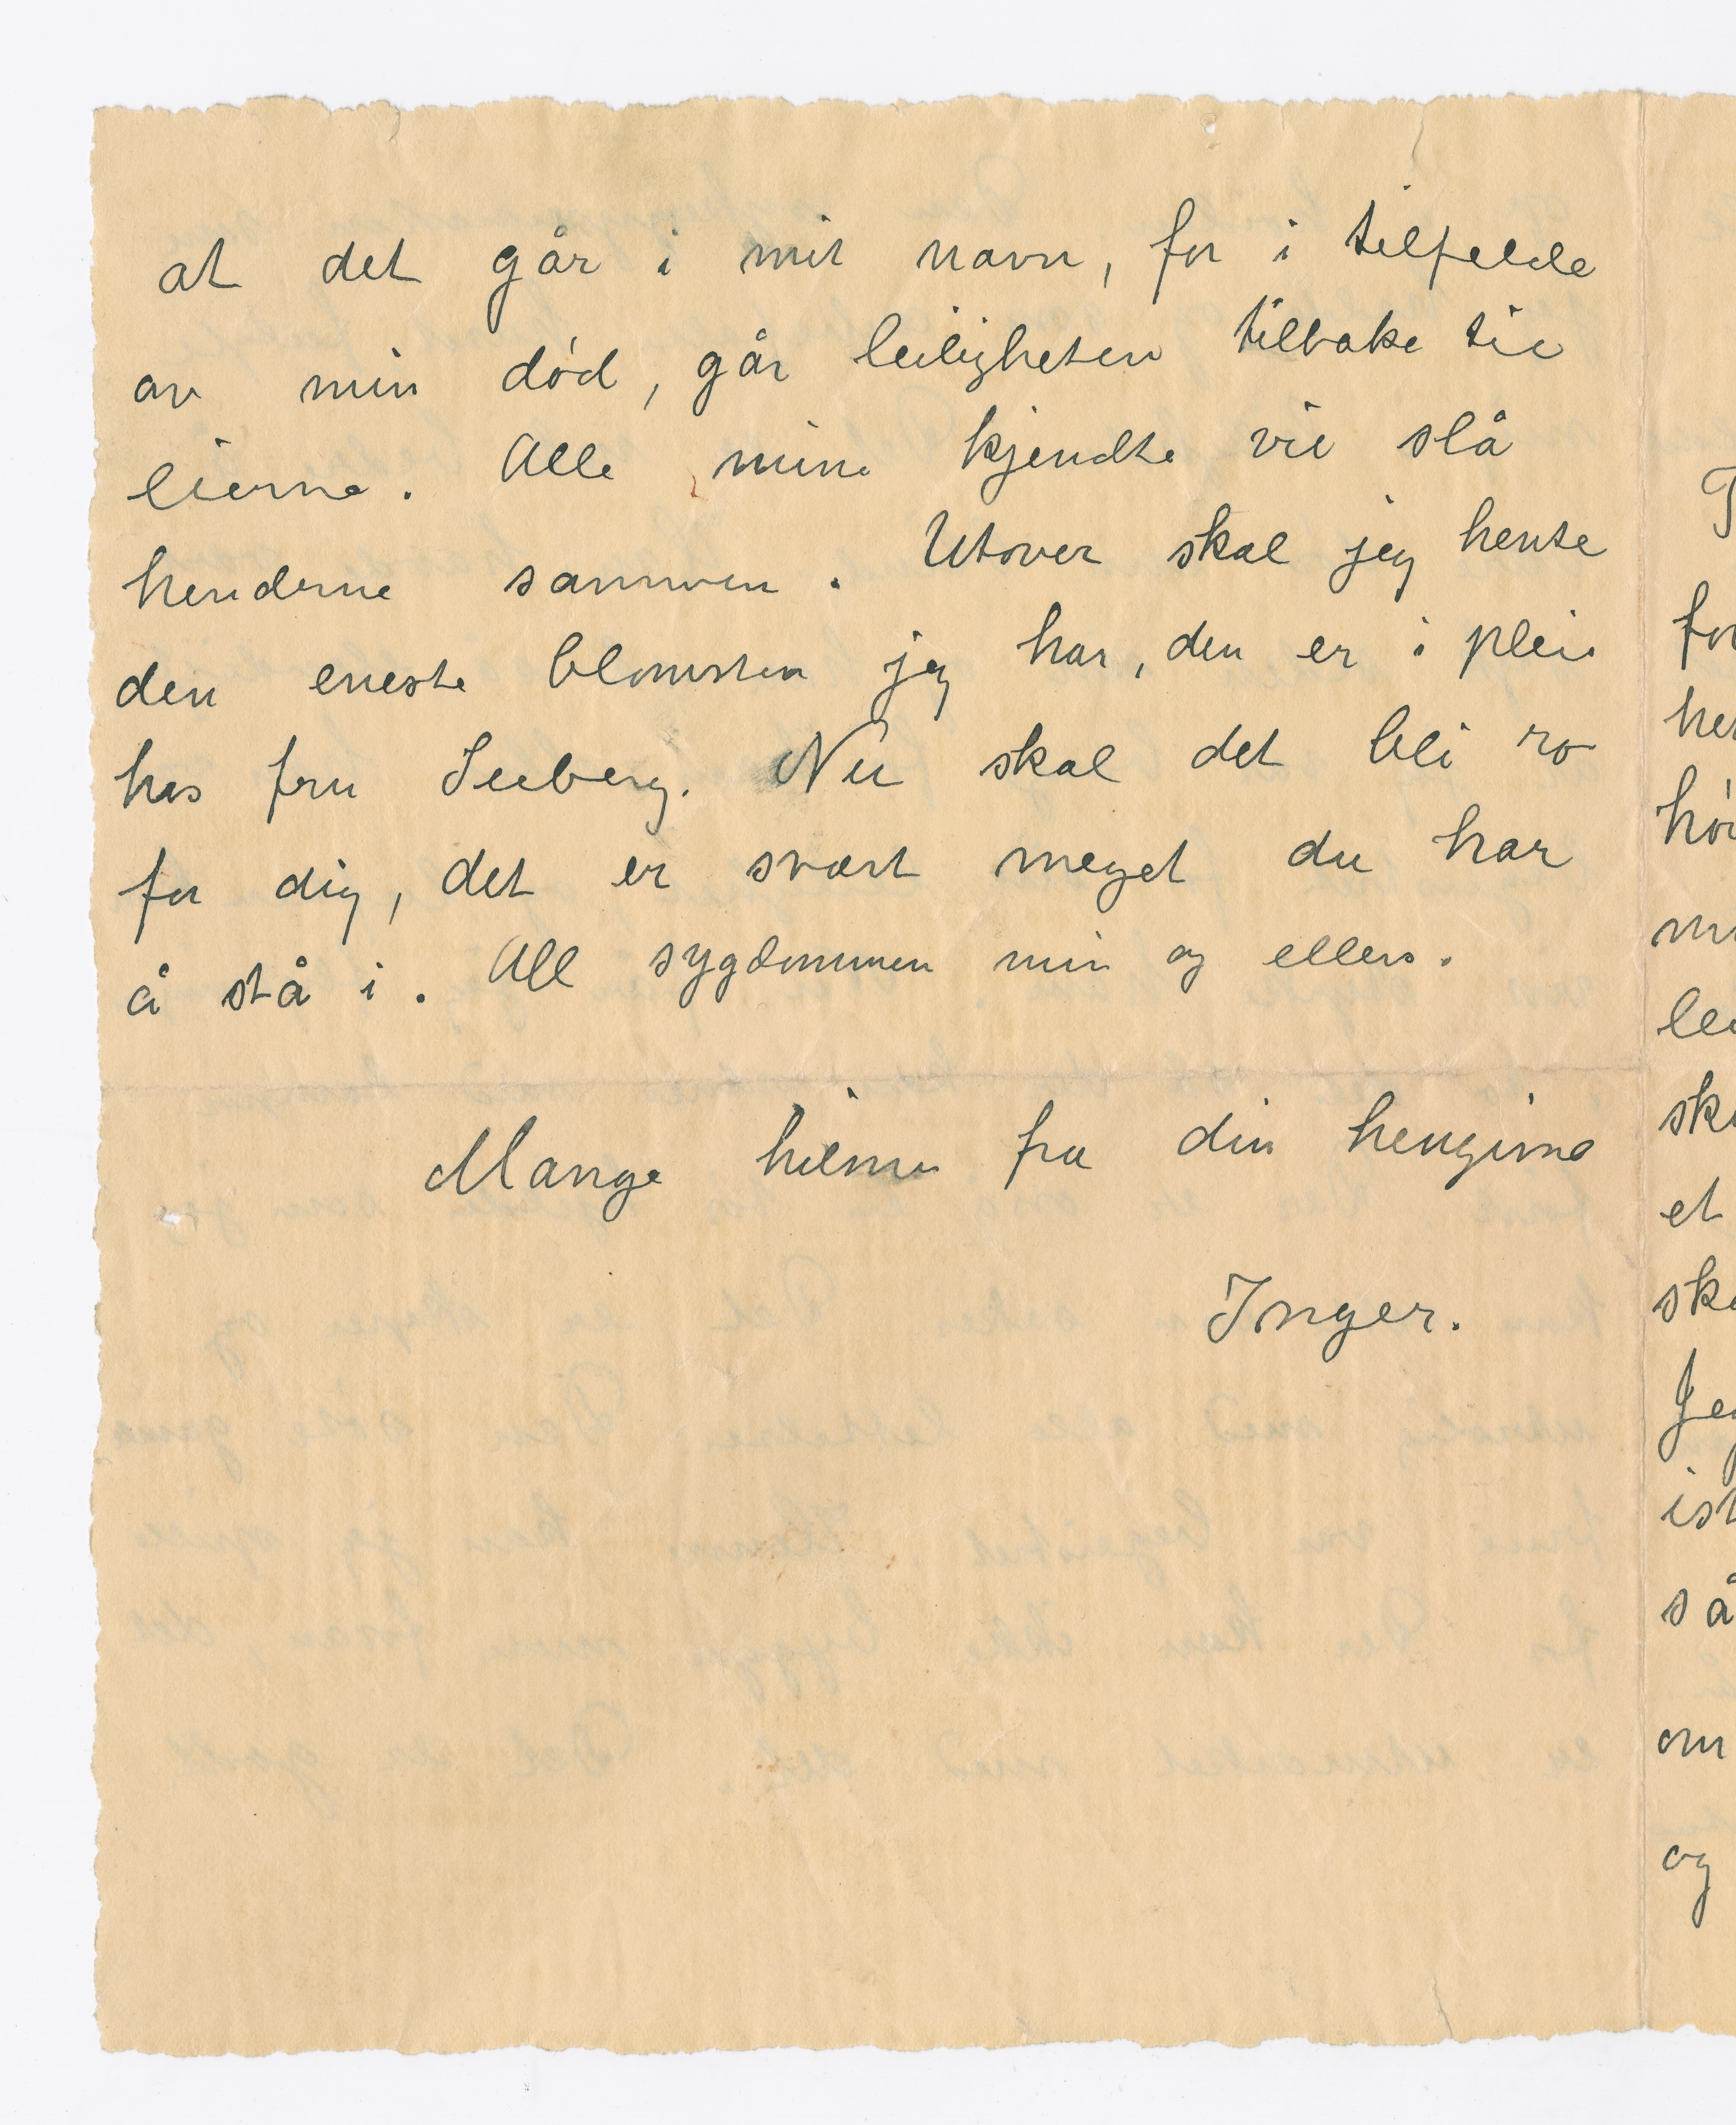 at det går i mit navn, for i tilfelde
av min død, går leiligheten tilbake til
eierne. Alle mine kjendte vil slå
henderne sammen. Utover skal jeg hente
den eneste blomsten jeg har, den er i pleie
hos fru Seeberg. Nu skal det bli ro
for dig, det er svært meget du har
å stå i. All sygdommen min og ellers.
Mange hilsner fra din hengivne
Inger.